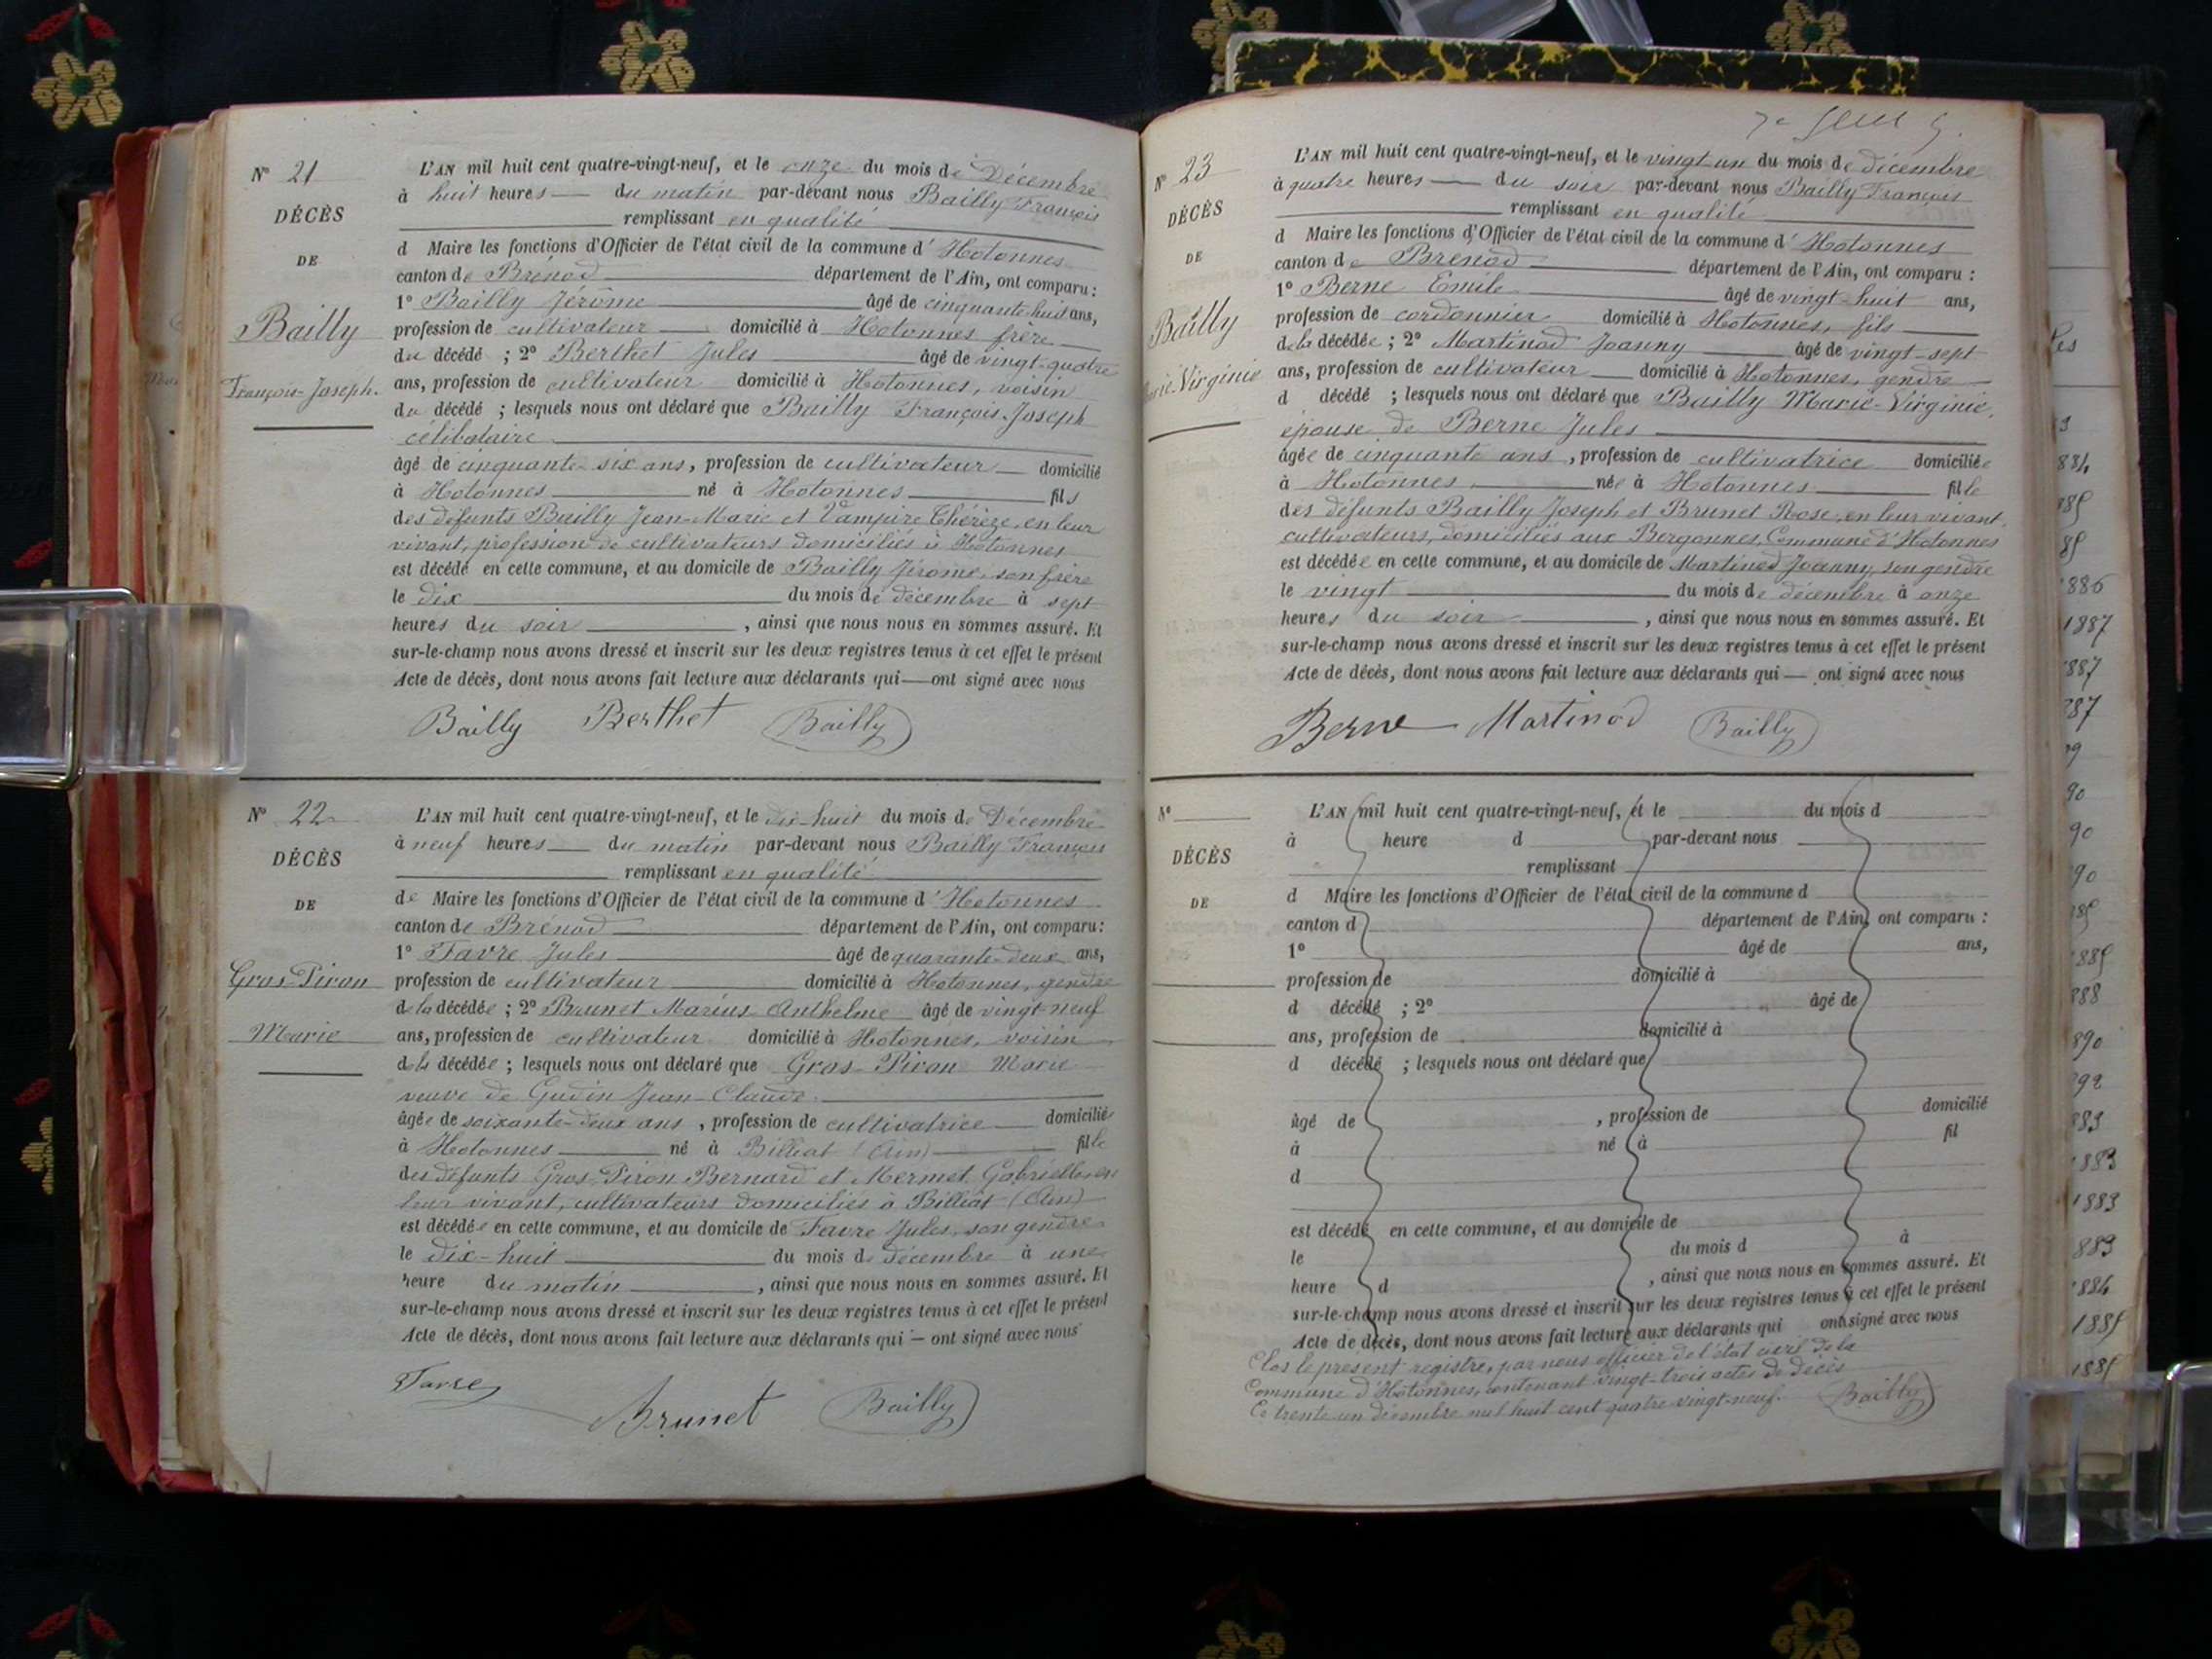 N° 21
DÉCÈS
DE
Bailly
François-Joseph.
L'AN mil huit cent quatre-vingt-neuf, et le onze du mois de Décembre
à huit heures du matin par-devant nous Bailly François
remplissant en qualité
d Maire les fonctions d'Officier de l'état civil de la commune d'Hotonnes
canton de Brénod département de l'Ain, ont comparu :
1° Bailly Jérôme âgé de cinquante-huit ans,
profession de cultivateur domicilié à Hotonnes frère
du décédé ; 2° Berthet Jules âgé de vingt-quatre
ans, profession de cultivateur domicilié à Hotonnes, voisin
du décédé ; lesquels nous ont déclaré que Bailly François-Joseph
célibataire
âgé de cinquante-six ans, profession de cultivateur domicilié
à Hotonnes né à Hotonnes fils
des défunts Bailly Jean-Marie et Vampire Thérèze, en leur
vivant, profession de cultivateurs domiciliés à Hotonnes
est décédé en cette commune, et au domicile de Bailly Jérôme, son frère
le dix du mois de décembre à sept
heures du soir, ainsi que nous nous en sommes assuré. Et
sur-le-champ nous avons dressé et inscrit sur les deux registres tenus à cet effet le présent
Acte de décès, dont nous avons fait lecture aux déclarants qui — ont signé avec nous
Bailly Berthet Bailly
N° 22
DÉCÈS
DE
Gros-Piron
Marie
L'AN mil huit cent quatre-vingt-neuf, et le dix-huit du mois de Décembre
à neuf heures du matin par-devant nous Bailly François
remplissant en qualité
de Maire les fonctions d'Officier de l'état civil de la commune d'Hotonnes
canton de Brénod département de l'Ain, ont comparu :
1° Favre Jules âgé de quarante-deux ans,
profession de cultivateur domicilié à Hotonnes, gendre
de la décédée ; 2° Brunet Marius Anthelme âgé de vingt-neuf
ans, profession de cultivateur domicilié à Hotonnes, voisin
de la décédée ; lesquels nous ont déclaré que Gros-Piron Marie
veuve de Gudin Jean-Claude
âgée de soixante-deux ans, profession de cultivatrice domiciliée
à Hotonnes né à Billiat (Ain) fille
des défunts Gros-Piron Bernard et Mermet Gabrielle, en
leur vivant, cultivateurs domiciliés à Billiat (Ain)
est décédée en cette commune, et au domicile de Favre Jules, son gendre
le dix-huit du mois de décembre à une
heure du matin, ainsi que nous nous en sommes assuré. Et
sur-le-champ nous avons dressé et inscrit sur les deux registres tenus à cet effet le présent
Acte de décès, dont nous avons fait lecture aux déclarants qui — ont signé avec nous
Favre Brunet Bailly
N° 23
DÉCÈS
DE
Bailly
Marie-Virginie
L'AN mil huit cent quatre-vingt-neuf, et le vingt-un du mois de décembre
à quatre heures du soir par-devant nous Bailly François
remplissant en qualité
d Maire les fonctions d'Officier de l'état civil de la commune d'Hotonnes
canton de Brénod département de l'Ain, ont comparu :
1° Berne Emile âgé de vingt-huit ans,
profession de cordonnier domicilié à Hotonnes, fils
de la décédée ; 2° Martinod Joanny âgé de vingt-sept
ans, profession de cultivateur domicilié à Hotonnes, gendre
d décédé ; lesquels nous ont déclaré que Bailly Marie-Virginie,
épouse de Berne Jules
âgée de cinquante ans, profession de cultivatrice domiciliée
à Hotonnes née à Hotonnes fille
des défunts Bailly Joseph et Brunet Rose, en leur vivant,
cultivateurs, domiciliés aux Bergonnes, Commune d'Hotonnes
est décédée en cette commune, et au domicile de Martinod Joanny, son gendre
le vingt du mois de décembre à onze
heures du soir, ainsi que nous nous en sommes assuré. Et
sur-le-champ nous avons dressé et inscrit sur les deux registres tenus à cet effet le présent
Acte de décès, dont nous avons fait lecture aux déclarants qui — ont signé avec nous
Berne Martinod Bailly
N°
DÉCÈS
DE
L'AN mil huit cent quatre-vingt-neuf, et le du mois d
à heure d par-devant nous
remplissant
d Maire les fonctions d'Officier de l'état civil de la commune d
canton d département de l'Ain, ont comparu :
1° âgé de ans,
profession de domicilié à
d décédé ; 2° âgé de
ans, profession de domicilié à
d décédé ; lesquels nous ont déclaré que
âgé de , profession de domicilié
à né à fil
d
est décédé en cette commune, et au domicile de
le du mois d à
heure d , ainsi que nous nous en sommes assuré. Et
sur-le-champ nous avons dressé et inscrit sur les deux registres tenus à cet effet le présent
Acte de décès, dont nous avons fait lecture aux déclarants qui ont signé avec nous
Clos le présent registre, par nous officier de l'état civil de la
Commune d'Hotonnes, contenant vingt-trois actes de décès
Ce trente-un décembre mil huit cent quatre vingt-neuf. Bailly
1887
1883
1885